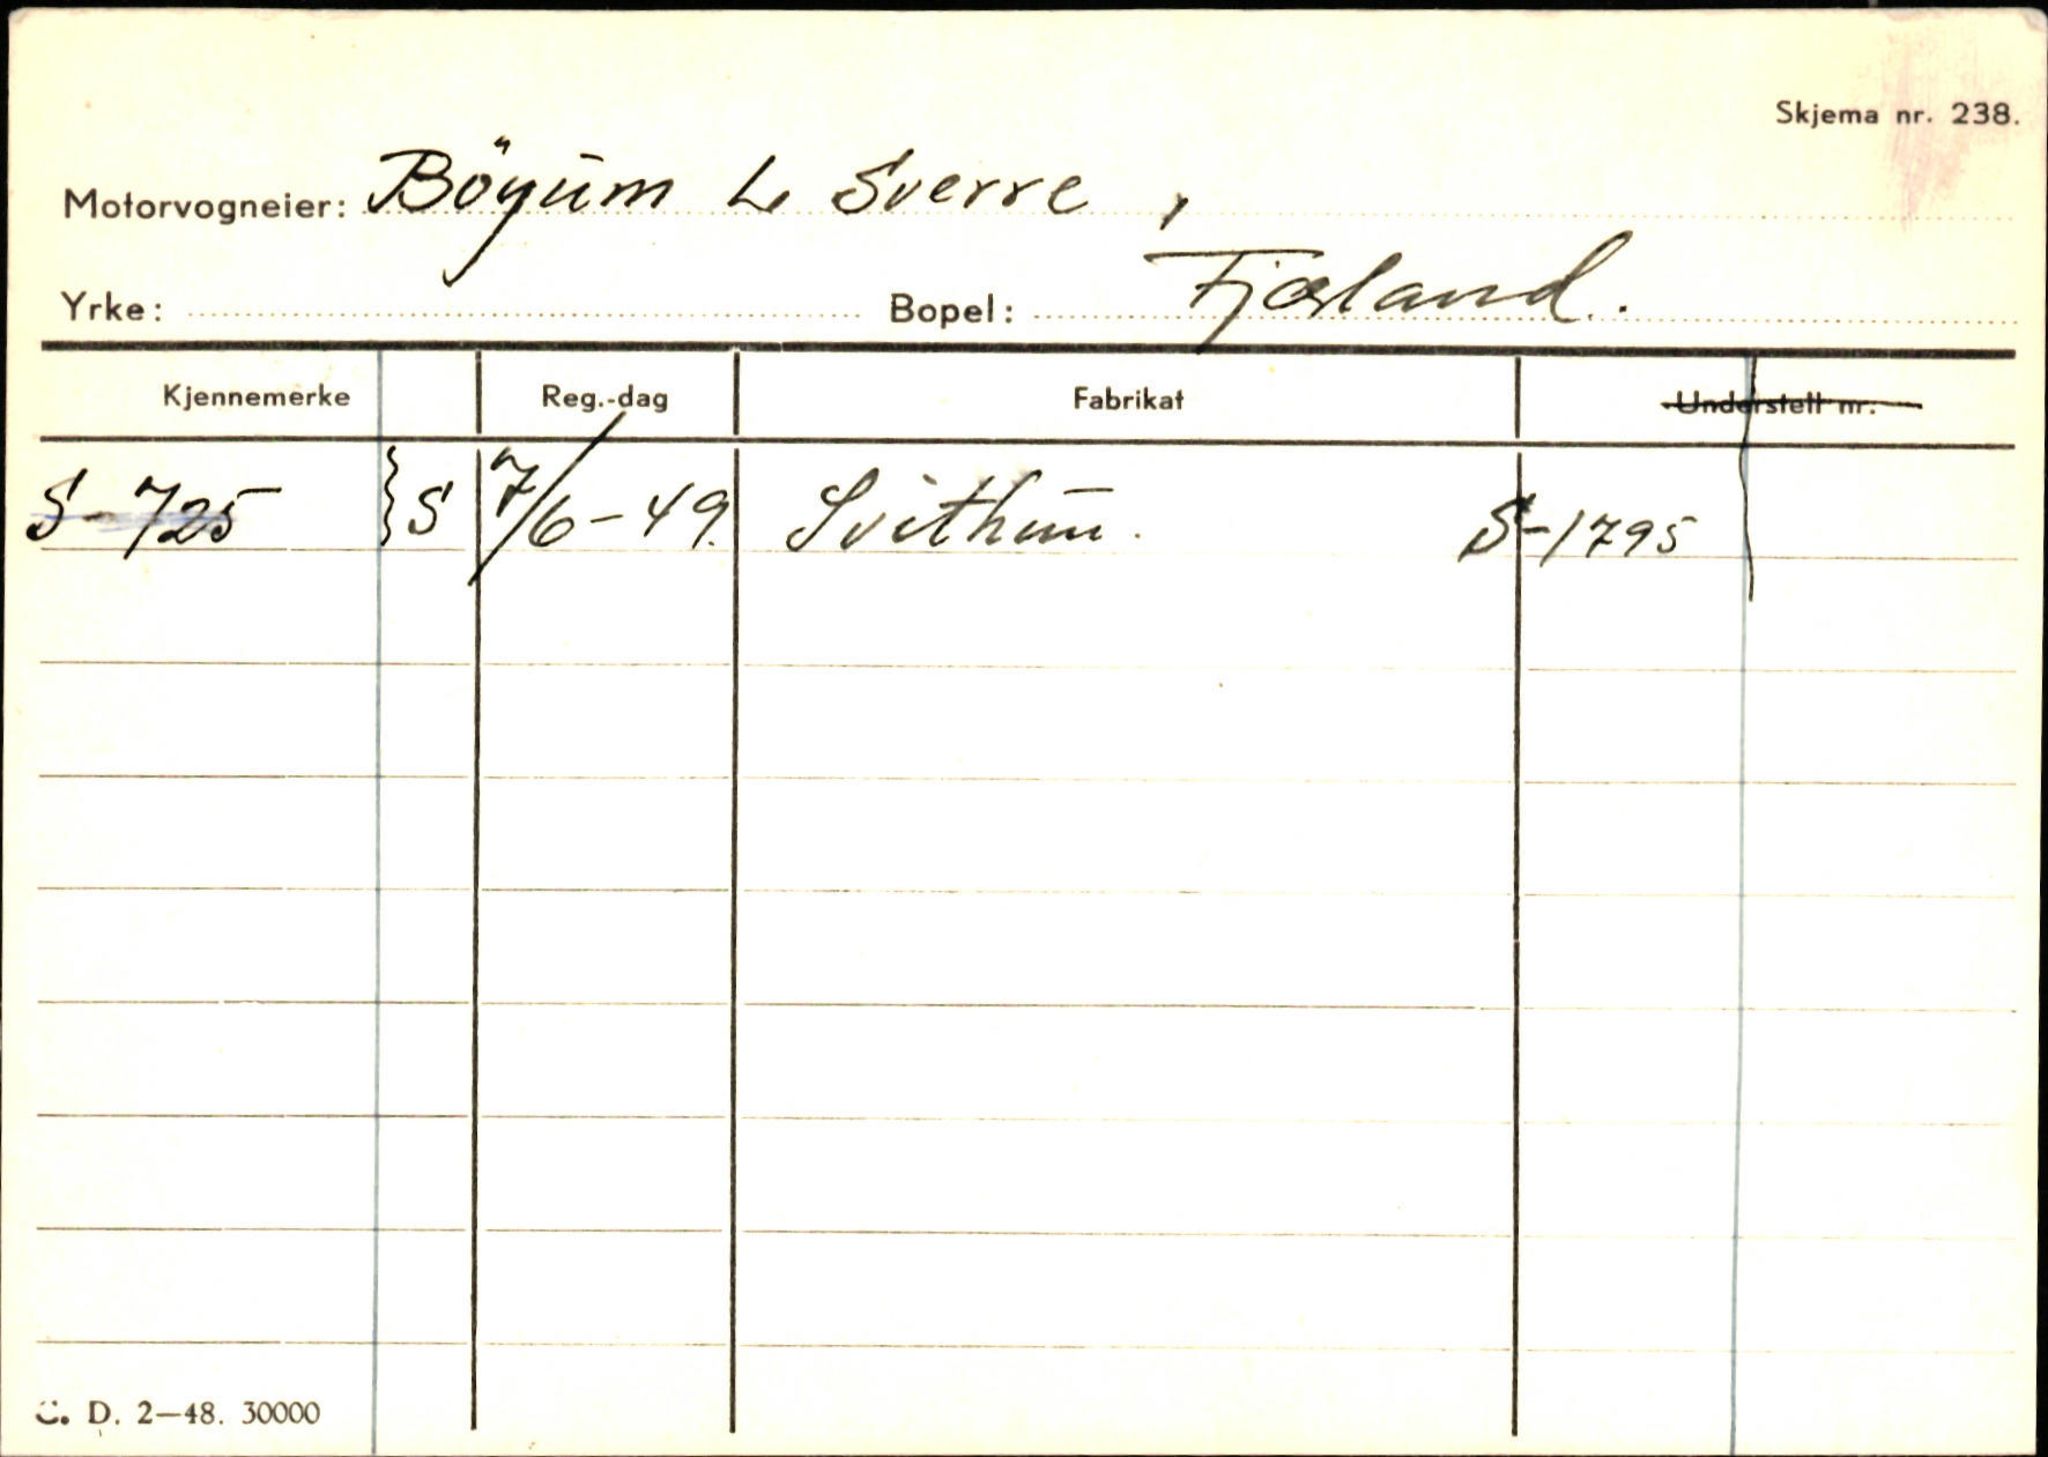 Skjema nr. 238.
Motorvogneier: Böyum L. Sverre,
Yrke: Bopel: Fjærland.
Kjennemerke Reg.-dag Fabrikat Understell nr.
S-725 } S 7/6-49. Svithun. S-1795
C. D. 2-48. 30000